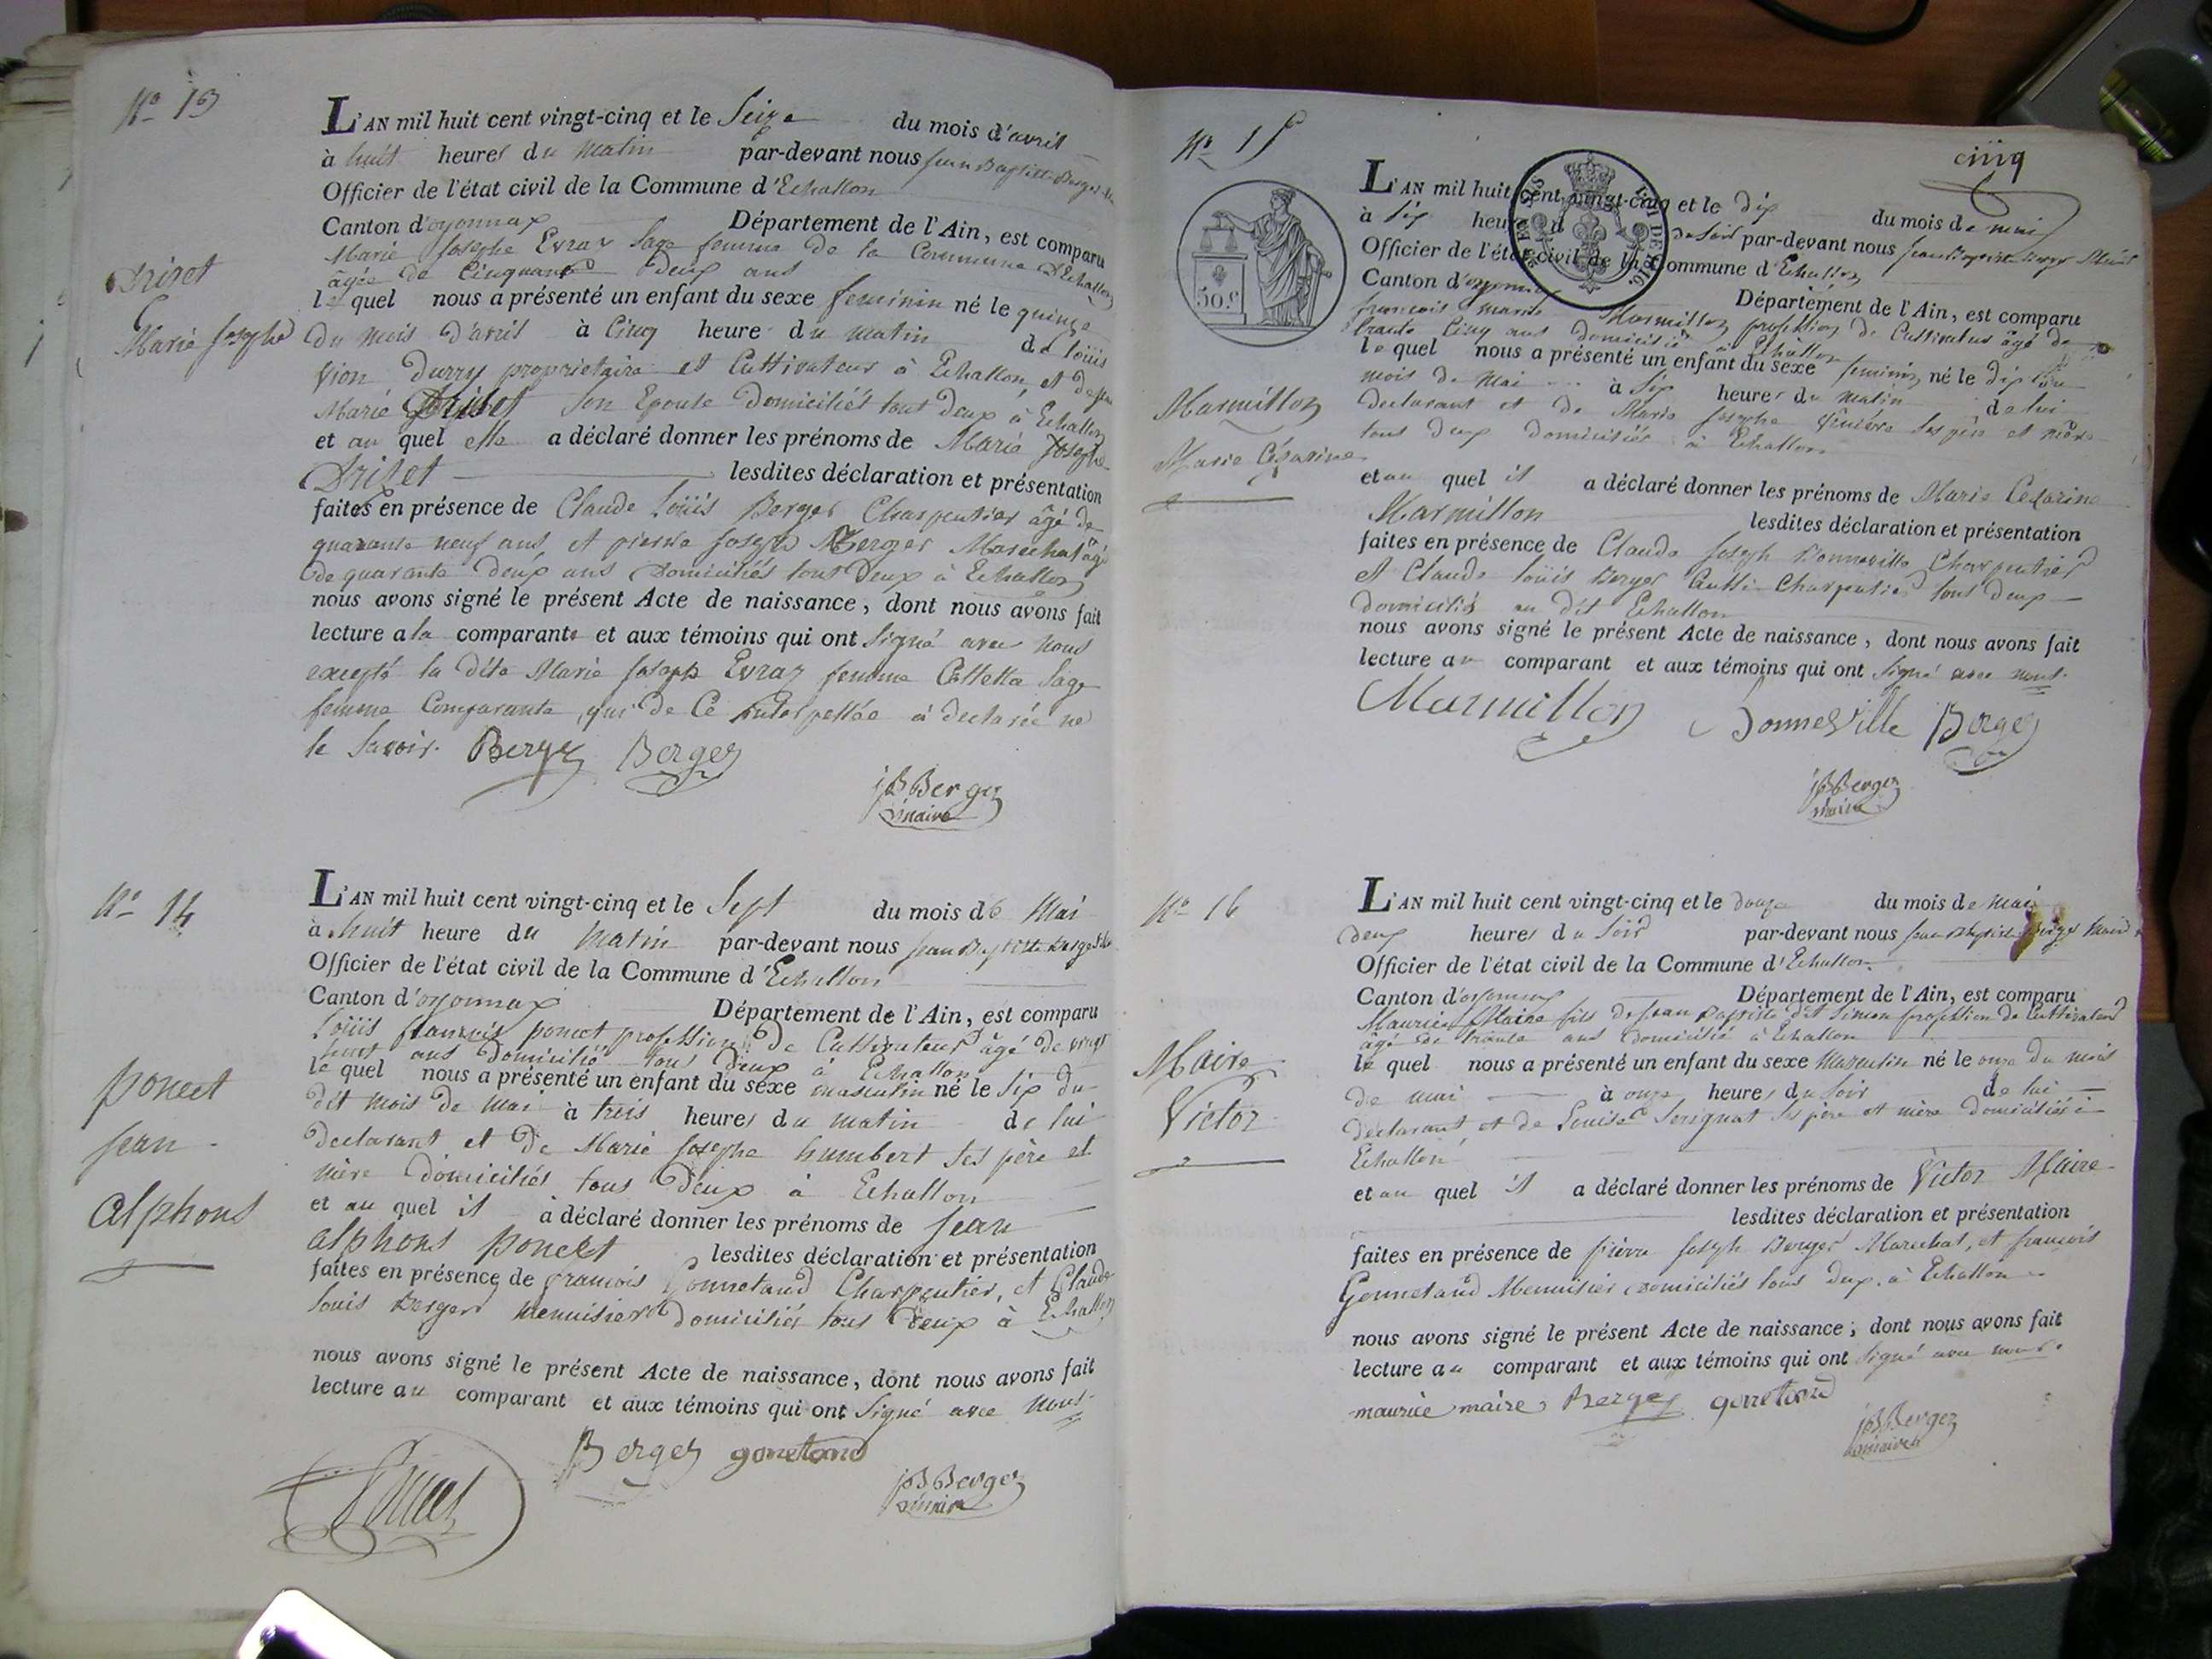 No 13
L'AN mil huit cent vingt-cinq et le Seize du mois d'avril
à huit heures du matin par-devant nous jean Baptiste Berger
Officier de l'état civil de la Commune d'Echallon
Canton d'oyonnax Département de l'Ain, est comparu
Marie Josephe Evraz Sage femme de la Commune d'Echallon
âgée de Cinquante deux ans
Drizet
le quel nous a présenté un enfant du sexe feminin né le quinze
Marie Josephe
du mois d'avril à Cinq heure du matin de loüis
vion durry proprietaire et Cultivateur à Echallon, et de
Marie Drizet son Epouse Domiciliés tout deux à Echallon
et au quel elle a déclaré donner les prénoms de Marie Josephe
Drizet lesdites déclaration et présentation
faites en présence de Claude Loüis Berger Charpentier âgé de
quarante neuf ans et pierre Joseph Berger Marechal âgé
de quarante deux ans Domiciliés tout deux à Echallon
nous avons signé le présent Acte de naissance, dont nous avons fait
lecture a la comparante et aux témoins qui ont signé avec nous
excepté la dite Marie Joseph Evraz femme Sage
femme Comparante, qui de Ce interpellée à declarée ne
le Savoir. Berger Berger
jB Berger
maire
No 14
L'AN mil huit cent vingt-cinq et le Sept du mois de Mai
à huit heure du matin par-devant nous jean Baptiste Berger
Officier de l'état civil de la Commune d'Echallon
Canton d'oyonnax Département de l'Ain, est comparu
Loüis francois poncet profession de Cultivateur âgé de vingt
huit ans domicilié tous deux à Echallon
le quel nous a présenté un enfant du sexe masculin né le six du
poncet
dit mois de mai à trois heures du matin de lui
jean
declarant et de Marie Josephe humbert ses père et
mère domiciliés tous deux à Echallon
alphons
et au quel il a déclaré donner les prénoms de jean
alphons poncet lesdites déclaration et présentation
faites en présence de francois Gonnetand Charpentier, et Claude
Louis Berger menuisier domiciliés tous deux à Echallon
nous avons signé le présent Acte de naissance, dont nous avons fait
lecture au comparant et aux témoins qui ont signé avec nous
Berger gonetand
Poncet
jB Berger
maire
cinq
No 15
L'AN mil huit cent vingt-cinq et le dix du mois de mai
à six heure du soir par-devant nous jean Baptiste Berger Maire
Officier de l'état civil de la Commune d'Echallon
50 c
Canton d'oyonnax Département de l'Ain, est comparu
francois marie Marmillon profession de Cultivateur âgé de
trente Cinq ans domicilié à Echallon
le quel nous a présenté un enfant du sexe feminin né le dix du
mois de Mai à six heures du matin de lui
Marmillon
declarant et de Marie Josephe ses père et mère
tous deux domiciliés à Echallon
Marie Césarine
et au quel il a déclaré donner les prénoms de Marie Cesarine
Marmillon lesdites déclaration et présentation
faites en présence de Claude Joseph Bonneville Charpentier
et Claude Loüis Berger aussi Charpentier tous deux
domiciliés au dit Echallon
nous avons signé le présent Acte de naissance, dont nous avons fait
lecture au comparant et aux témoins qui ont signé avec nous.
Marmillon Bonneville Berger
jB Berger
maire
No 16
L'AN mil huit cent vingt-cinq et le douze du mois de mai
deux heures du soir par-devant nous jean Baptiste Berger Maire
Officier de l'état civil de la Commune d'Echallon
Canton d'oyonnax Département de l'Ain, est comparu
Maurice Maire fils de jean Baptiste dit Simon profession de Cultivateur
âgé de trente ans domicilié à Echallon
Maire
le quel nous a présenté un enfant du sexe Masculin né le onze du mois
de mai à onze heures du soir de lui
Victor
declarant et de Louise Serignat ses père et mère domiciliés à
Echallon
et au quel il a déclaré donner les prénoms de Victor Maire
lesdites déclaration et présentation
faites en présence de pierre Joseph Berger Marechal, et francois
Gonnetand Menuisier domiciliés tous deux à Echallon
nous avons signé le présent Acte de naissance, dont nous avons fait
lecture au comparant et aux témoins qui ont signé avec nous.
maurice maire Berger gonetand
jB Berger
maire